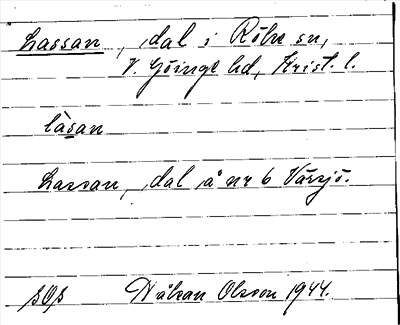 Lassan, dal i Röke sn,
V. Göinge hd, Krist. l.
làsan
Lassan, dal å nr 6 Värsjö.
sOs Håkan Olsson 1944.